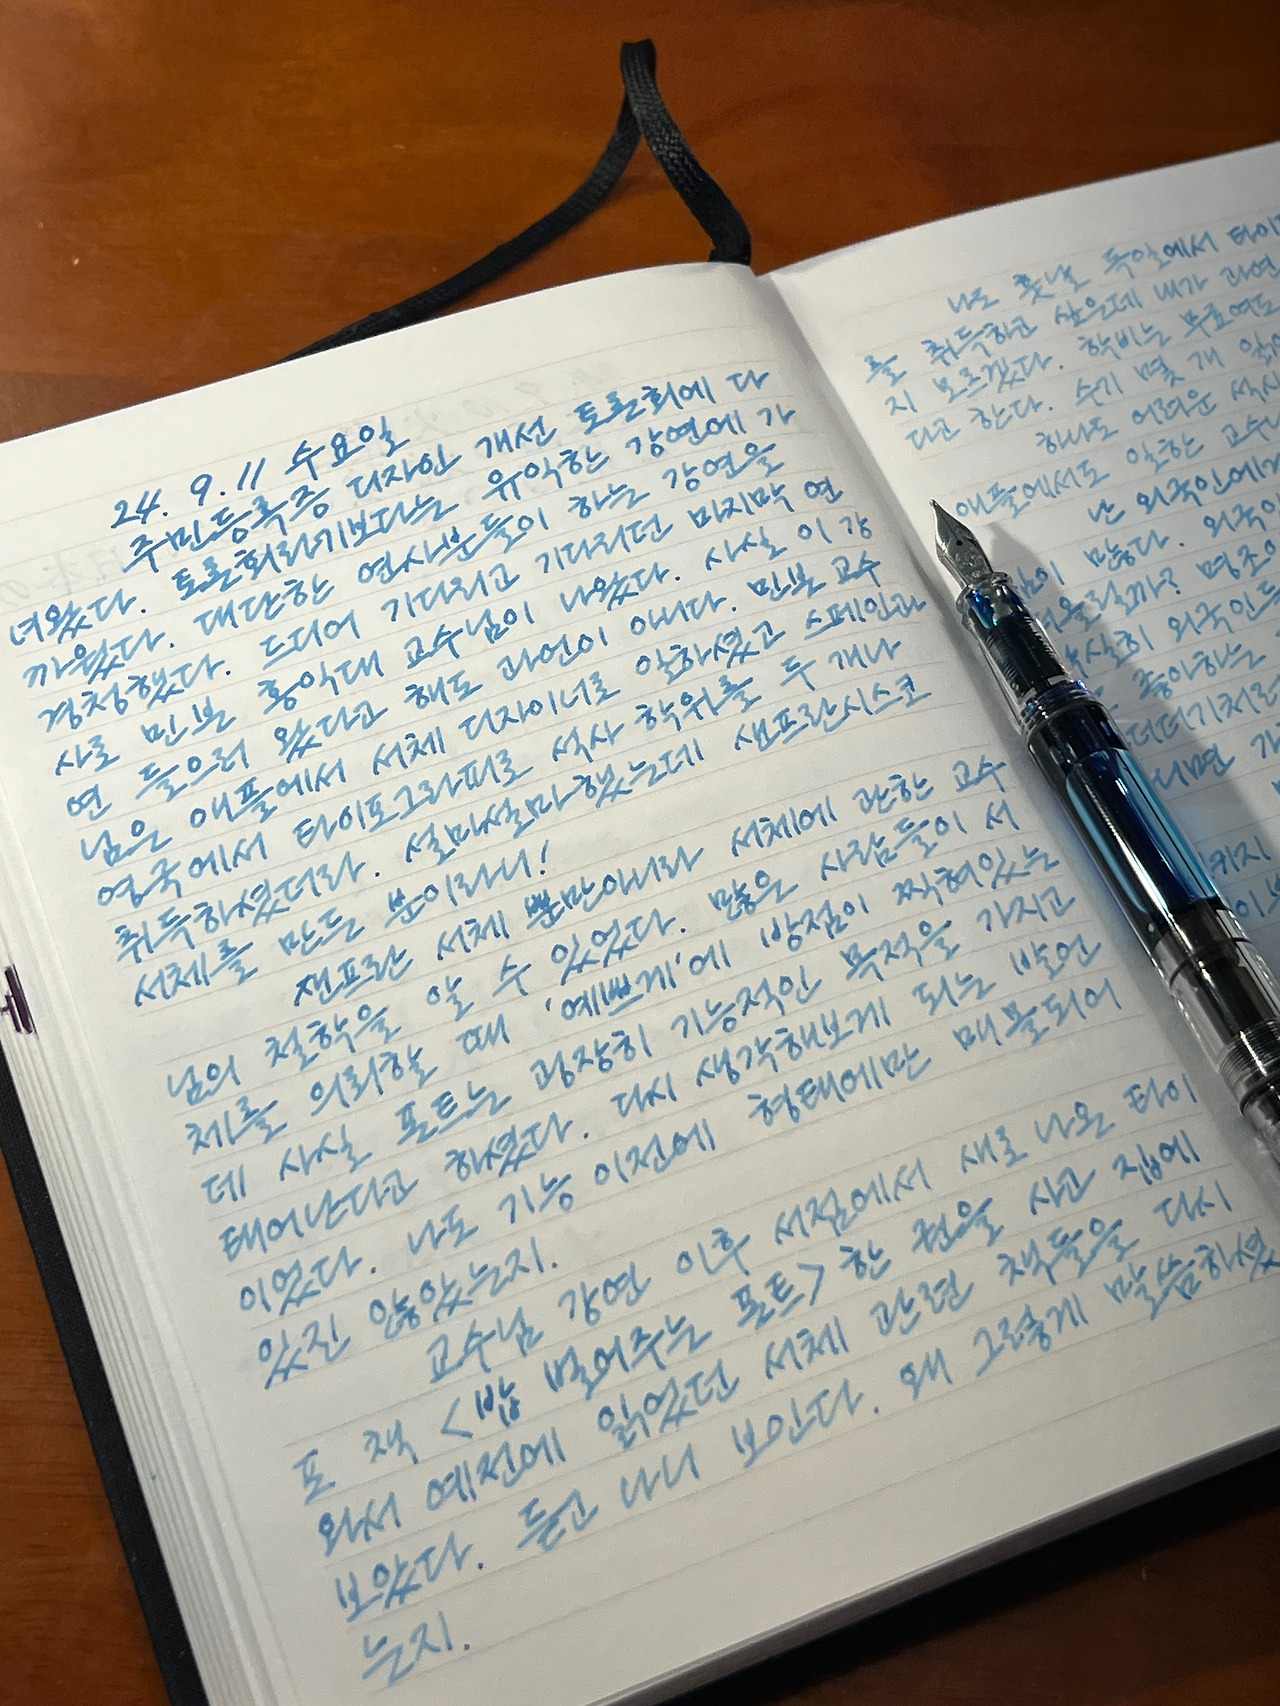 24. 9. 11 수요일
주민등록증 디자인 개선 토론회에 다
녀왔다. 토론회라기보다는 유익한 강연에 가
까웠다. 대단한 연사분들이 하는 강연을
경청했다. 드디어 기다리고 기다리던 마지막 연
사로 민본 홍익대 교수님이 나왔다. 사실 이 강
연 들으러 왔다고 해도 과언이 아니다. 민본 교수
님은 애플에서 서체 디자이너로 일하셨고 스페인과
영국에서 타이포그라피로 석사 학위를 두 개나
취득하셨더라. 설마설마했는데 샌프란시스코
서체를 만든 분이라니!
샌프란 서체 뿐만아니라 서체에 관한 교수
님의 철학을 알 수 있었다. 많은 사람들이 서
체를 의뢰할 때 '예쁘게'에 방점이 찍혀있는
데 사실 폰트는 굉장히 기능적인 목적을 가지고
태어난다고 하셨다. 다시 생각해보게 되는 발언
이었다. 나도 기능 이전에 형태에만 매몰되어
있진 않았는지.
교수님 강연 이후 서점에서 새로 나온 타이
포 책 <밥 벌어주는 폰트> 한 권을 사고 집에
와서 예전에 읽었던 서체 관련 책들을 다시
보았다. 듣고 나니 보인다. 왜 그렇게 말씀하셨
는지.
나도 훗날 독일에서 타이
를 취득하고 싶은데 내가 과연
지 모르겠다. 학비는 무료여도
다고 한다. 수기 몇 개 읽
하나도 어려운 석사
애플에서도 일한 교수님
난 외국인에게
많다. 외국인
까? 명조
외국인들
좋아하는